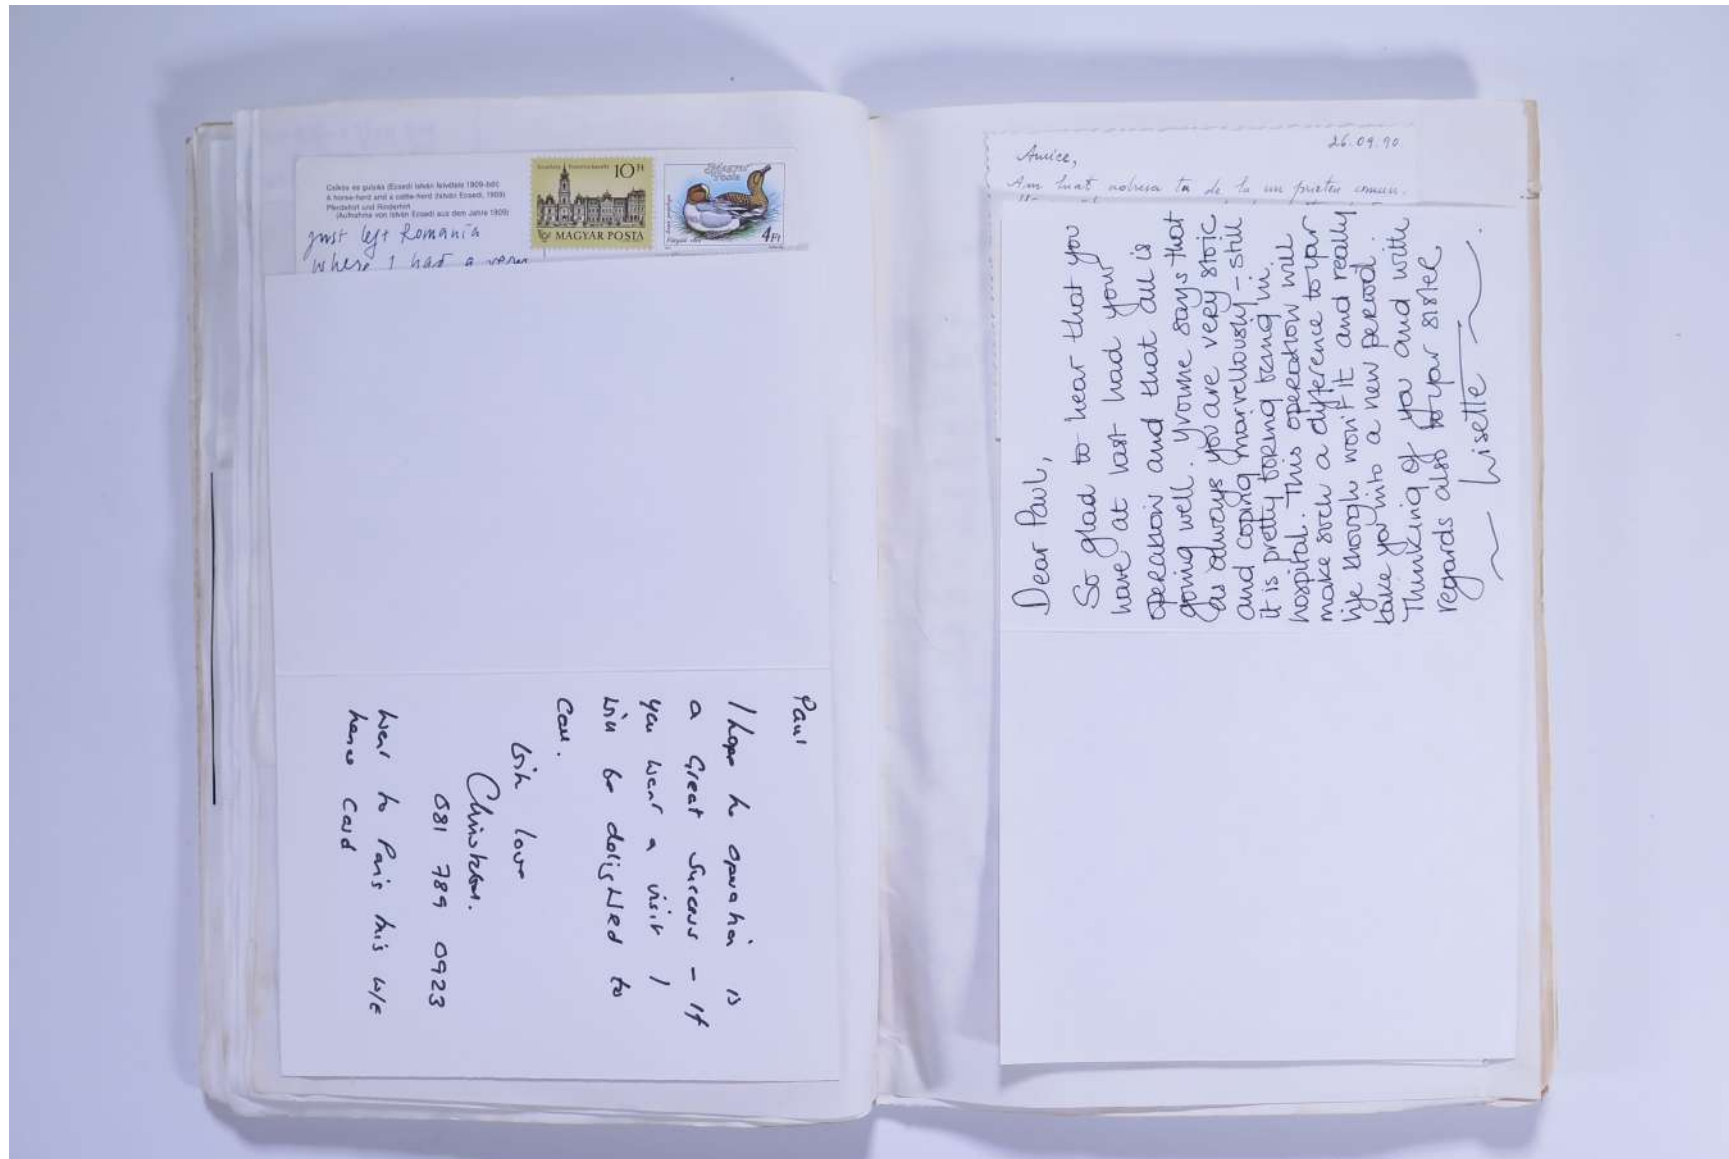 Csikós és gulyás (Ecsedi István felvétele 1909-ből)
A horse-herd and a cattle-herd (István Ecsedi, 1909)
Pferdehirt und Rinderhirt
(Aufnahme von István Ecsedi aus dem Jahre 1909)
just left Romania
where I had a very
10 Ft
MAGYAR POSTA
Magyar Posta
4 Ft
Paul
I hope the operation is
a Great Success - If
you want a visit I
will be delighted to
Call.
With love
Christopher.
081 789 0923
Went to Paris this w/e
hence Card
26.09.90
Amice,
Am luat adresa ta de la un prieten comun.
Dear Paul,
So glad to hear that you
have at last had your
operation and that all is
going well. Yvonne says that
as always you are very stoic
and coping marvellously - still
it is pretty boring being in
hospital. This operation will
make such a difference to your
life though won't it and really
take you into a new period.
Thinking of you and with
regards also to your sister
~ Lisette ~